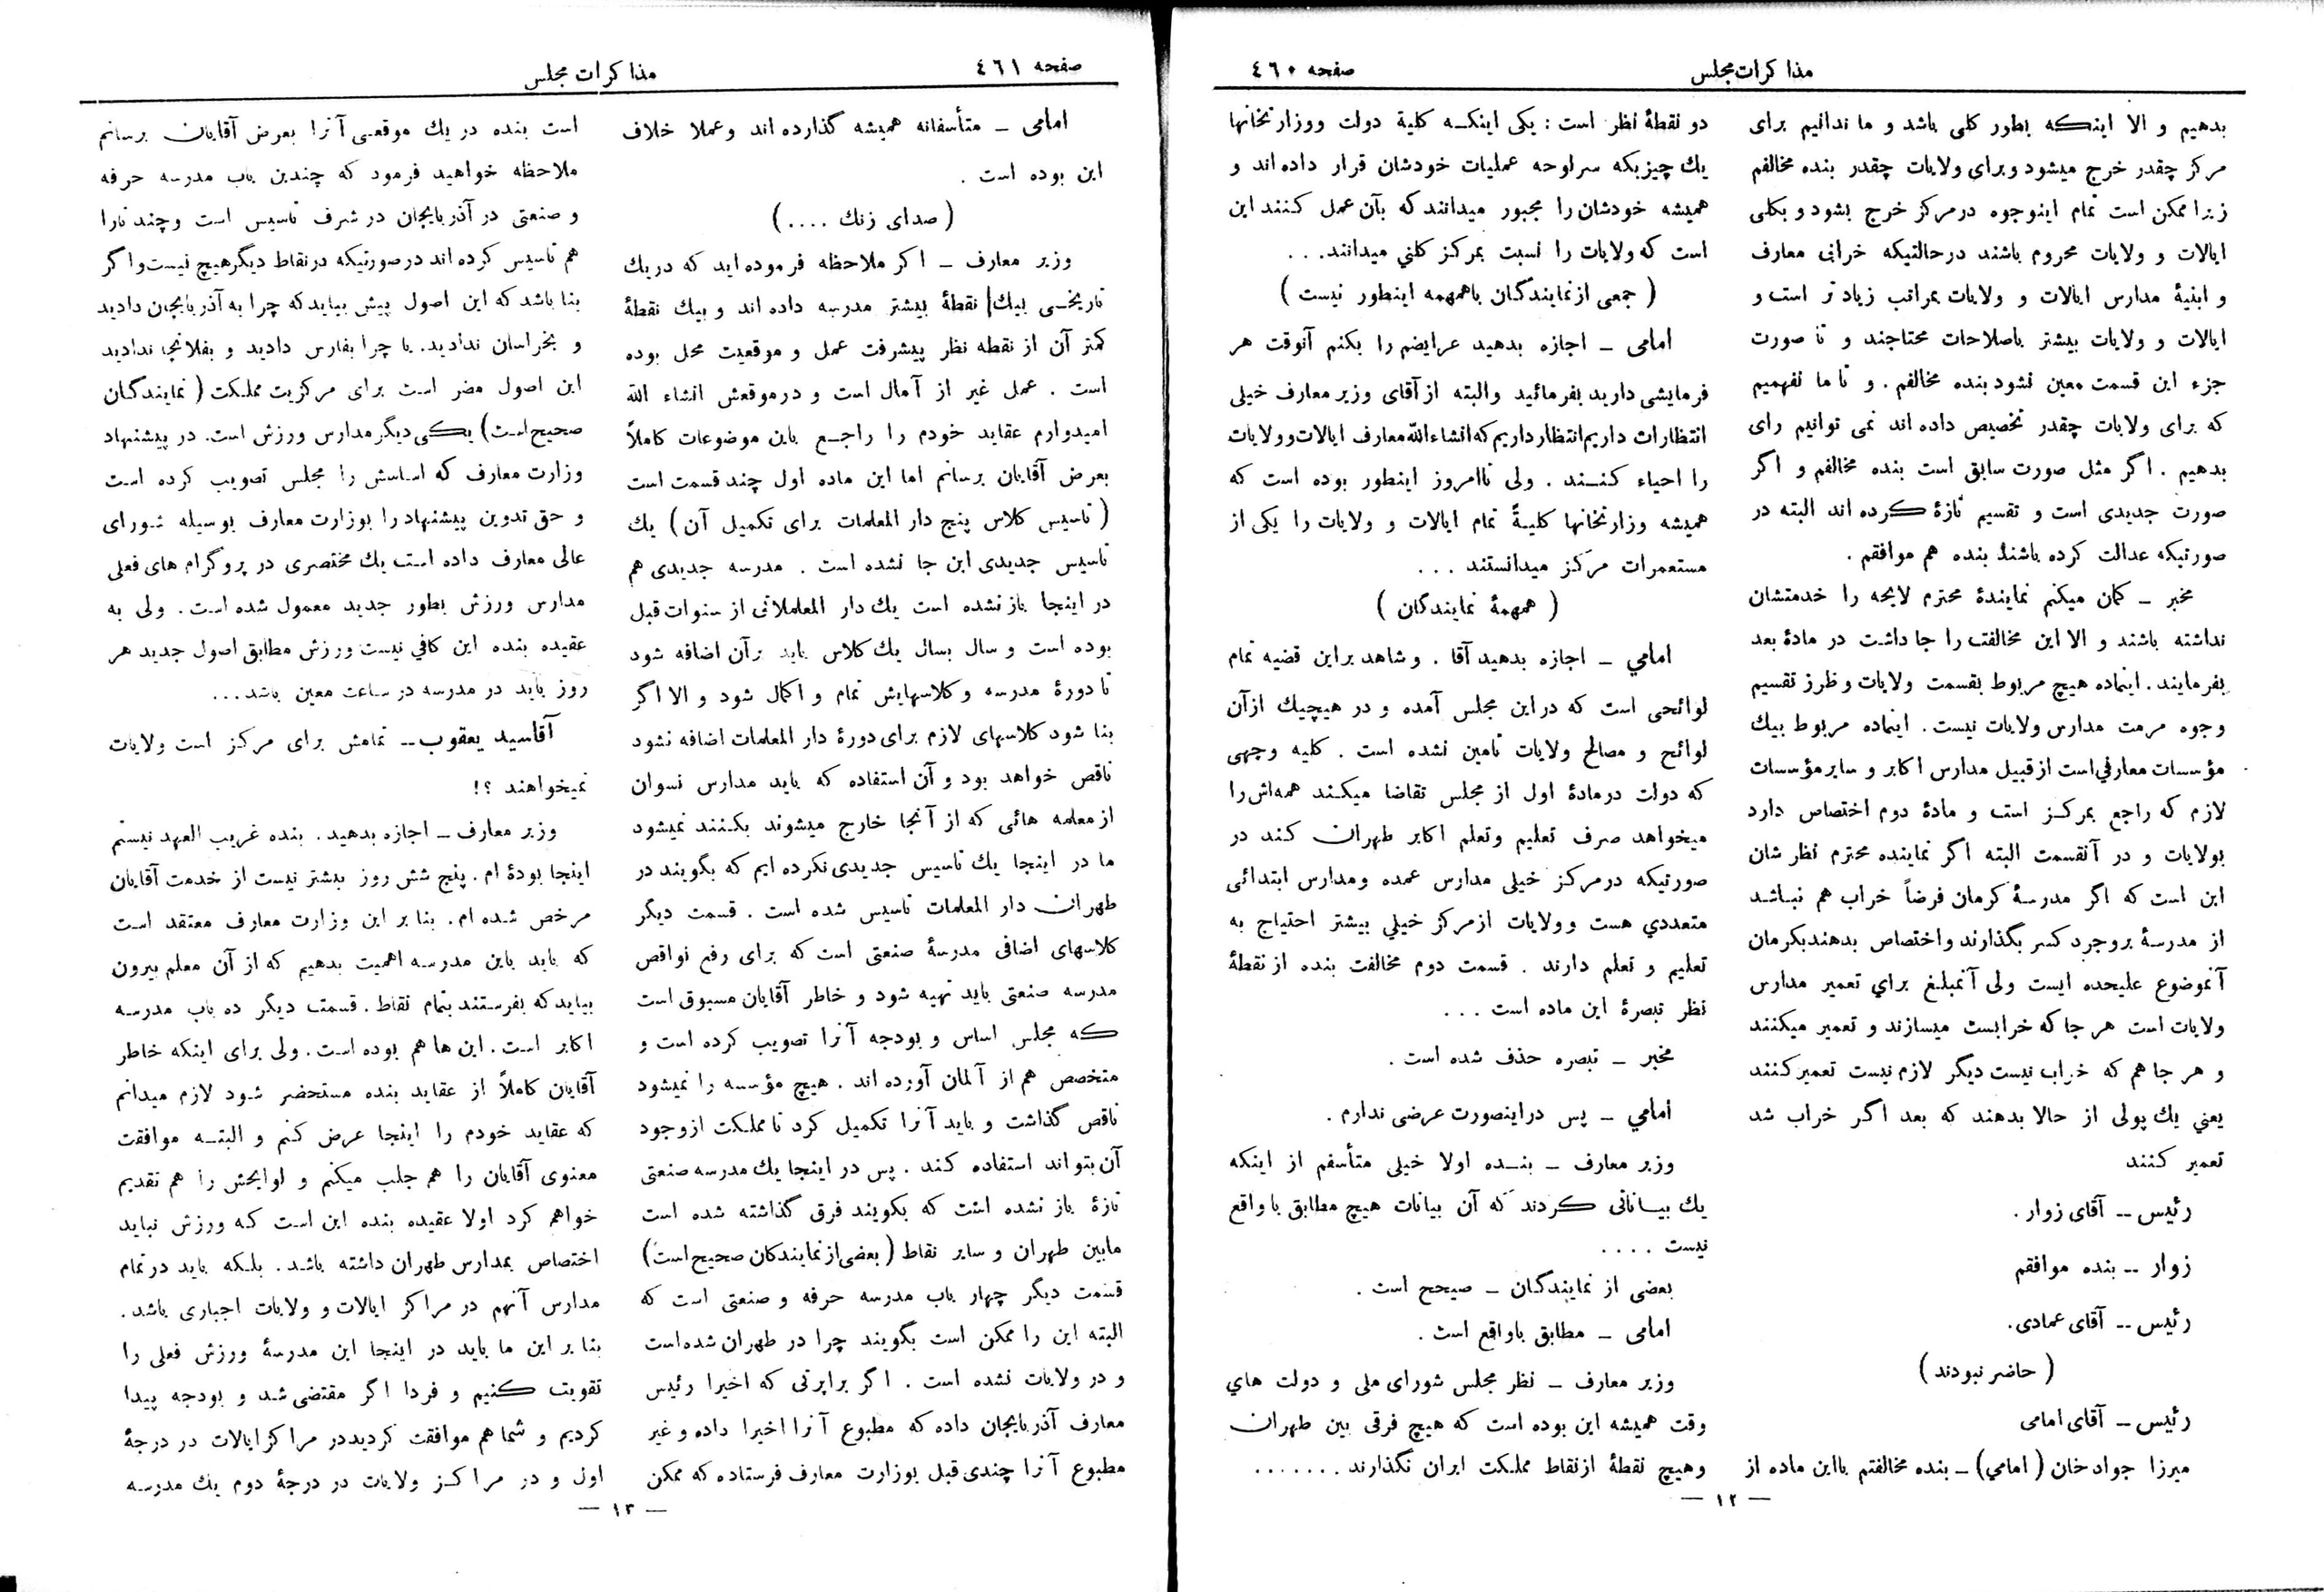 مذاکرات مجلس
صفحه ٤٦٠
بدهیم و الا اینکه بطور کلی باشد و ما ندانیم برای
مرکز چقدر خرج میشود و برای ولایات چقدر بنده مخالفم
زیرا ممکن است تمام اینوجوه درمرکز خرج بشود و بکلی
ایالات و ولایات محروم باشند درحالتیکه خرابی معارف
و ابنیهٔ مدارس ایالات و ولایات بمراتب زیاد تر است و
ایالات و ولایات بیشتر باصلاحات محتاجند و تا صورت
جزء این قسمت معین نشود بنده مخالفم . و تا ما نفهمیم
که برای ولایات چقدر تخصیص داده اند نمی توانیم رای
بدهیم . اگر مثل صورت سابق است بنده مخالفم و اگر
صورت جدیدی است و تقسیم تازهٔ کرده اند البته در
صورتیکه عدالت کرده باشند بنده هم موافقم .
مخبر ــ گمان میکنم نمایندهٔ محترم لایحه را خدمتشان
نداشته باشند و الا این مخالفت را جا داشت در مادهٔ بعد
بفرمایند . اینماده هیچ مربوط بقسمت ولایات و طرز تقسیم
وجوه مرمت مدارس ولایات نیست . اینماده مربوط بیك
مؤسسات معارفي است از قبیل مدارس اکابر و سایر مؤسسات
لازم که راجع بمرکز است و مادهٔ دوم اختصاص دارد
بولایات و در آنقسمت البته اگر نماینده محترم نظر شان
این است که اگر مدرسهٔ کرمان فرضاً خراب هم نباشد
از مدرسهٔ بروجرد کسر بگذارند و اختصاص بدهند بکرمان
آنموضوع علیحده ایست ولی آنمبلغ براي تعمیر مدارس
ولایات است هر جا که خرابست میسازند و تعمیر میکنند
و هر جا هم که خراب نیست دیگر لازم نیست تعمیر کنند
یعني یك پولی از حالا بدهند که بعد اگر خراب شد
تعمیر کنند
رئیس ــ آقای زوار .
زوار ــ بنده موافقم
رئیس ــ آقای عمادی.
( حاضر نبودند )
رئیس ــ آقای امامی
میرزا جواد خان ( امامي) ــ بنده مخالفتم بااین ماده از
دو نقطهٔ نظر است : یکی اینکه کلیهٔ دولت ووزارتخانها
یك چیزیکه سرلوحه عملیات خودشان قرار داده اند و
همیشه خودشان را مجبور میدانند که بآن عمل کنند این
است که ولایات را نسبت بمرکز کلني میدانند. . .
( جمعی از نمایندگان باهمهمه اینطور نیست )
امامی ــ اجازه بدهید عرایضم را بکنم آنوقت هر
فرمایشی دارید بفرمائید والبته از آقای وزیر معارف خیلی
انتظارات داریم انتظار داریم که انشاءالله معارف ایالات و ولایات
را احیاء کنند . ولی تاامروز اینطور بوده است که
همیشه وزارتخانها کلیهً تمام ایالات و ولایات را یکی از
مستعمرات مرکز میدانستند . . .
( همهمهٔ نمایندگان )
امامي ــ اجازه بدهید آقا . و شاهد براین قضیه تمام
لوائحی است که در این مجلس آمده و در هیچیك ازآن
لوائح و مصالح ولایات تامین نشده است . کلیه وجهی
که دولت درمادهٔ اول از مجلس تقاضا میکند همه‌اش را
میخواهد صرف تعلیم وتعلم اکابر طهران کند در
صورتیکه درمرکز خیلی مدارس عمده ومدارس ابتدائی
متعددي هست وولایات ازمرکز خیلي بیشتر احتیاج به
تعلیم و تعلم دارند . قسمت دوم مخالفت بنده از نقطهٔ
نظر تبصرهٔ این ماده است . . .
مخبر ــ تبصره حذف شده است .
امامي ــ پس دراینصورت عرضی ندارم .
وزیر معارف ــ بنده اولا خیلی متأسفم از اینکه
یك بیاناتی کردند که آن بیانات هیچ مطابق با واقع
نیست . . . .
بعضی از نمایندگان ــ صیحح است .
امامی ــ مطابق باواقع است .
وزیر معارف ــ نظر مجلس شورای ملی و دولت هاي
وقت همیشه این بوده است که هیچ فرقی بین طهران
وهیچ نقطهٔ ازنقاط مملکت ایران نگذارند . . . . . . .
— ١٢ —
صفحه ٤٦١
مذاکرات مجلس
امامی ــ متأسفانه همیشه گذارده اند وعملا خلاف
این بوده است .
( صدای زنك . . . . )
وزیر معارف ــ اگر ملاحظه فرموده اید که در یك
تاریخی بیك نقطهٔ بیشتر مدرسه داده اند و بیك نقطهٔ
کمتر آن از نقطه نظر پیشرفت عمل و موقعیت محل بوده
است . عمل غیر از آمال است و درموقعش انشاء الله
امیدوارم عقاید خودم را راجع باین موضوعات کاملاً
بعرض آقایان برسانم اما این ماده اول چند قسمت است
( تاسیس کلاس پنج دار المعلمات برای تکمیل آن ) یك
تاسیس جدیدی این جا نشده است . مدرسه جدیدی هم
در اینجا باز نشده است یك دار المعلماتی از سنوات قبل
بوده است و سال بسال یك کلاس باید برآن اضافه شود
تا دورهٔ مدرسه و کلاسهایش تمام و اکمال شود و الا اگر
بنا شود کلاسهای لازم برای دورهٔ دار المعلمات اضافه نشود
ناقص خواهد بود و آن استفاده که باید مدارس نسوان
از معلمه هائی که از آنجا خارج میشوند بکنند نمیشود
ما در اینجا یك تاسیس جدیدی نکرده ایم که بگویند در
طهران دار المعلمات تاسیس شده است . قسمت دیگر
کلاسهای اضافی مدرسهٔ صنعتی است که برای رفع نواقص
مدرسه صنعتی باید تهیه شود و خاطر آقایان مسبوق است
که مجلس اساس و بودجه آنرا تصویب کرده است و
متخصص هم از آلمان آورده اند . هیچ مؤسسه را نمیشود
ناقص گذاشت و باید آنرا تکمیل کرد تا مملکت از وجود
آن بتواند استفاده کند . پس در اینجا یك مدرسه صنعتی
تازهٔ باز نشده است که بگویند فرق گذاشته شده است
مابین طهران و سایر نقاط ( بعضی از نمایندگان صحیح است)
قسمت دیگر چهار باب مدرسه حرفه و صنعتی است که
البته این را ممکن است بگویند چرا در طهران شده‌است
و در ولایات نشده است . اگر براپرتی که اخیرا رئیس
معارف آذربایجان داده که مطبوع آنرا اخیرا داده و غیر
مطبوع آنرا چندی قبل بوزارت معارف فرستاده که ممکن
است بنده در یك موقعی آنرا بعرض آقایان برسانم
ملاحظه خواهید فرمود که چندین باب مدرسه حرفه
و صنعتی در آذربایجان در شرف تاسیس است و چند تارا
هم تاسیس کرده اند درصورتیکه درنقاط دیگر هیچ نیست و اگر
بنا باشد که این اصول پیش بیاید که چرا به آذربایجان دادید
و بخراسان ندادید. یا چرا بفارس دادید و بفلانجا ندادید
این اصول مضر است برای مرکزیت مملکت ( نمایندگان
صحیح است) یکی دیگر مدارس ورزش است. در پیشنهاد
وزارت معارف که اساسش را مجلس تصویب کرده است
و حق تدوین پیشنهاد را بوزارت معارف بوسیله شورای
عالی معارف داده است یك مختصری در پروگرام های فعلی
مدارس ورزش بطور جدید معمول شده است. ولی به
عقیده بنده این کافي نیست ورزش مطابق اصول جدید هر
روز باید در مدرسه در ساعت معین باشد...
آقاسید یعقوب ــ تمامش برای مرکز است ولایات
نمیخواهند ؟!
وزیر معارف ــ اجازه بدهید. بنده غریب العهد نیستم
اینجا بودهٔ ام. پنج شش روز بیشتر نیست از خدمت آقایان
مرخص شده ام. بنا بر این وزارت معارف معتقد است
که باید باین مدرسه اهمیت بدهیم که از آن معلم بیرون
بیاید که بفرستند بتمام نقاط. قسمت دیگر ده باب مدرسه
اکابر است. این ها هم بوده است. ولی برای اینکه خاطر
آقایان کاملاً از عقاید بنده مستحضر شود لازم میدانم
که عقاید خودم را اینجا عرض کنم و البته موافقت
معنوی آقایان را هم جلب میکنم و لوایحش را هم تقدیم
خواهم کرد اولا عقیده بنده این است که ورزش نباید
اختصاص بمدارس طهران داشته باشد. بلکه باید درتمام
مدارس آنهم در مراکز ایالات و ولایات اجباری باشد.
بنا بر این ما باید در اینجا این مدرسهٔ ورزش فعلی را
تقویت کنیم و فردا اگر مقتضی شد و بودجه پیدا
کردیم و شما هم موافقت کردید در مراکز ایالات در درجهٔ
اول و در مراکز ولایات در درجهٔ دوم یك مدرسه
— ١٣ —